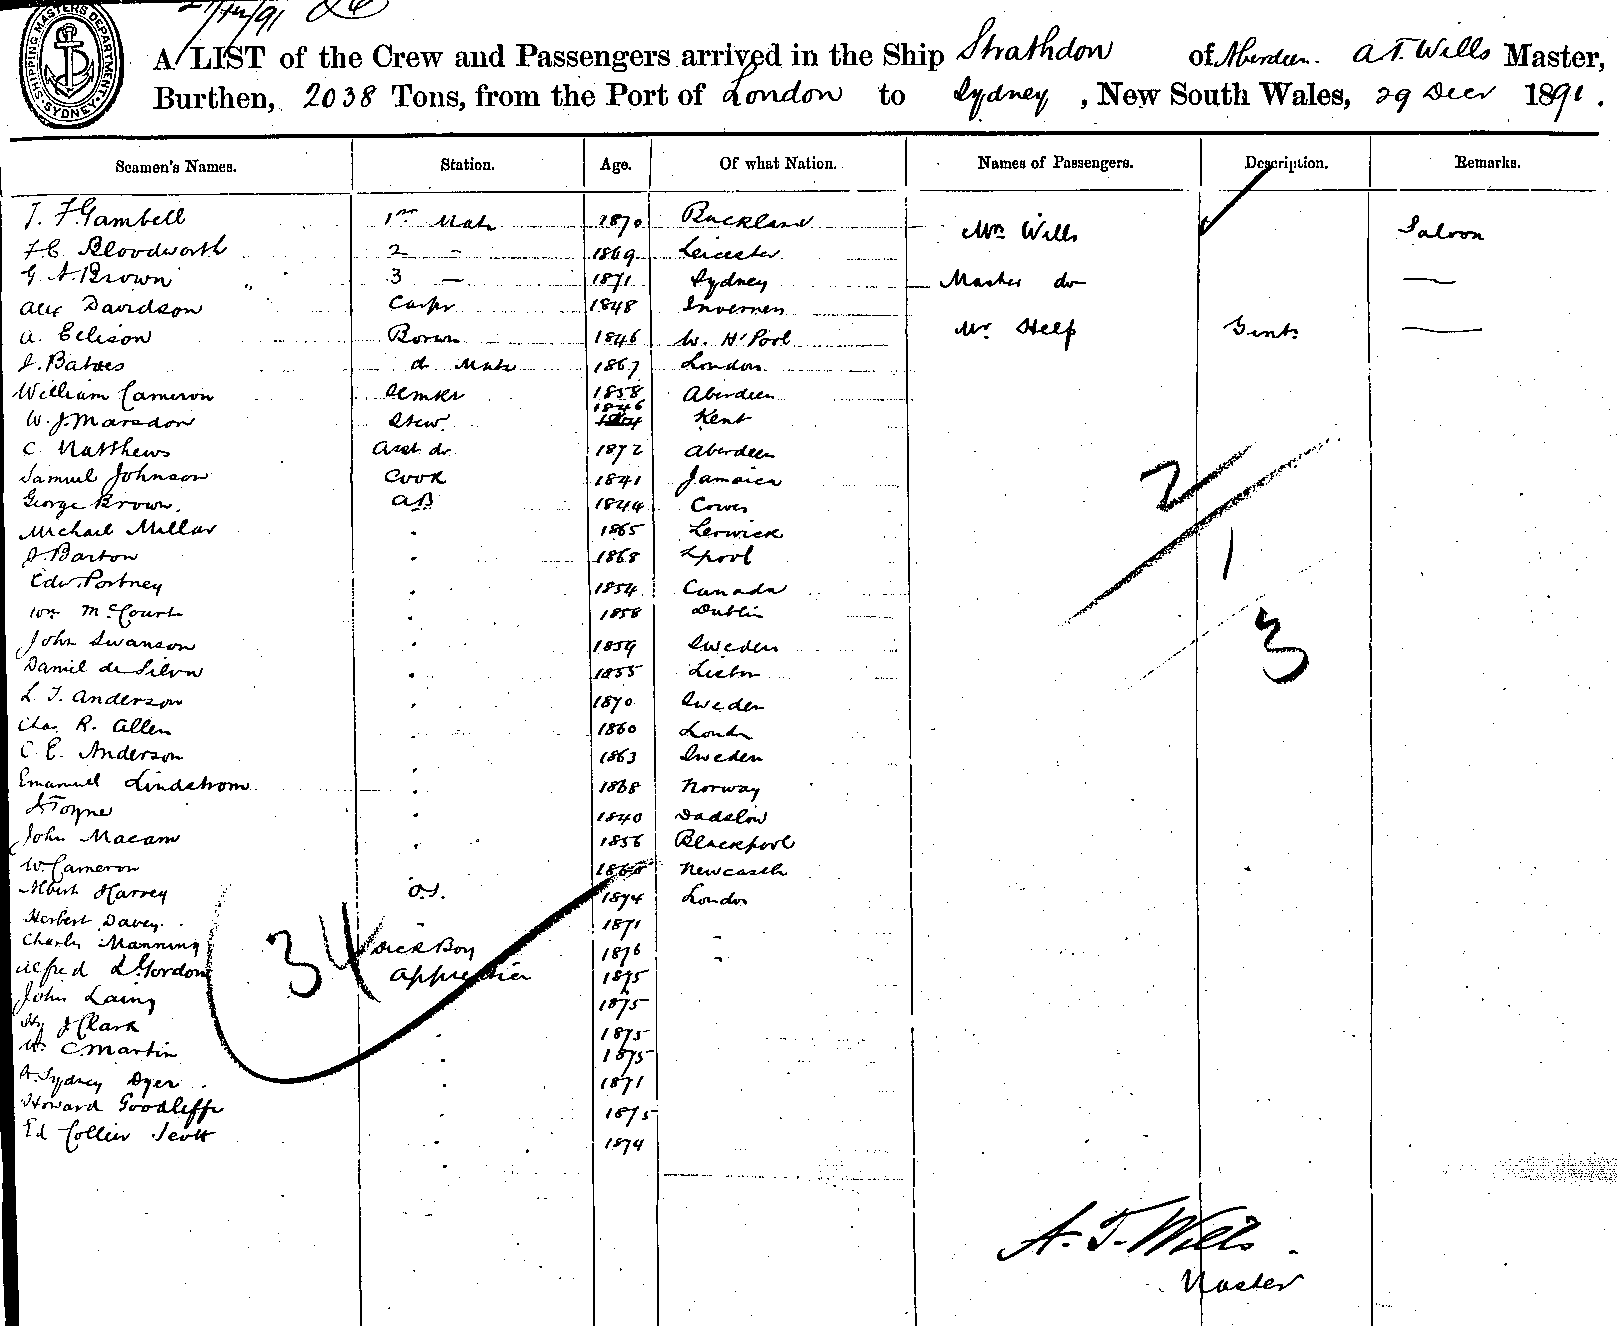 SHIPPING MASTERS DEPARTMENT SYDNEY
A LIST of the Crew and Passengers arrived in the Ship Strathdon of Aberdeen. A. T. Wills Master,
Burthen, 2038 Tons, from the Port of London to Sydney, New South Wales, 29 Decr 1891.
Seamen's Names. Station. Age. Of what Nation. Names of Passengers. Description. Remarks.
J. F. Gambell 1st Mate 1870 Buckland Mrs Wills Saloon
F C Bloodworth 2 - 1869 Leicester
G A. Brown " 3 - 1871 Sydney Master do —
Alex Davidson Carpr 1848 Inverness
A. Ellison Bosun 1846 W. H'Pool Mr Help Gent. —
J. Bates do Mate 1867 London
William Cameron Slmkr 1858 Aberdeen
W. J. Marsdon Stew. 1846 Kent
C Matthews Asst do 1872 Aberdeen
Samuel Johnson Cook 1841 Jamaica
George Brown. AB 1844 Cowes
Michael Millar 1865 Lerwick
J Barton 1868 Lpool
Edw. Portney 1854 Canada
Wm McCourt 1858 Dublin
John Swanson 1859 Sweden
Daniel de Silva 1855 Lisbon
L. J. Anderson 1870 Sweden
Chas R. Allen 1860 London
C. E. Anderson 1863 Sweden
Emanuel Lindstrom 1868 Norway
Toyne 1840
John Macam 1856 Blackpool
W. Cameron 1865 Newcastle
Albert Harvey O.S. 1874 London
Herbert Davey. 1871
Charles Manning Deck Boy 1876
Alfred L Gordon Apprentice 1875
John Laing 1875
Hy J Clark 1875
C Martin 1875
A. Sydney Dyer 1871
Howard Goodliffe 1875
Ed Collier Scott 1874
34
2
1
3
A. T. Wills.
Master